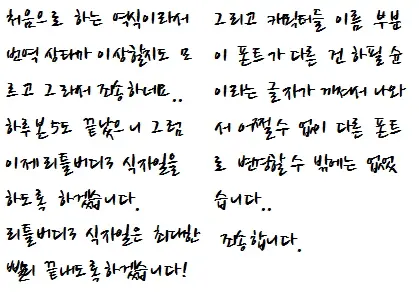 처음으로 하는 역식이라서
번역 상태가 이상할지도 모
르고 그래서 죄송하네요..
하루본5도 끝났으니 그럼
이제 리틀버디3 식자일을
하도록 하겠습니다.
리틀버디3 식자일은 최대한
빨리 끝내도록하겠습니다!
그리고 캐릭터들 이름 부분
이 폰트가 다른 건 하필 슌
이라는 글자가 깨져서 나와
서 어쩔수 없이 다른 폰트
로 변경할 수 밖에는 없었
습니다..
죄송합니다.